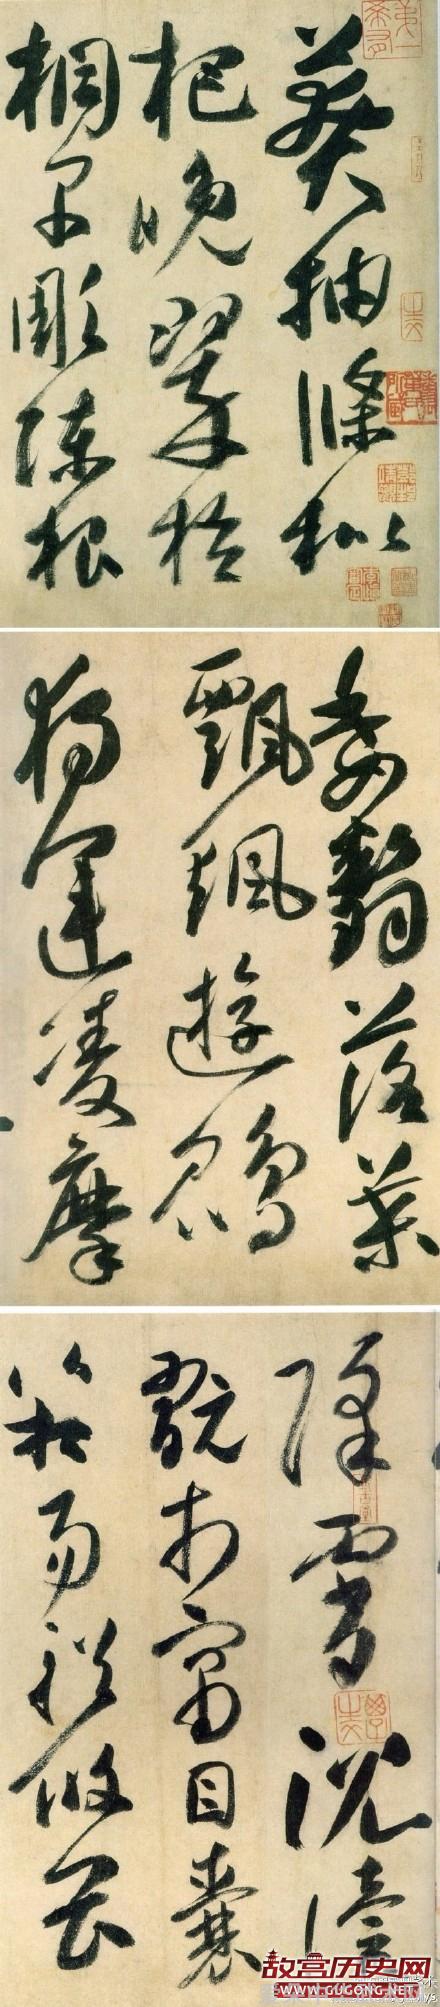 莽抽條枇
杷晚翠梧
桐早彫陳根
委翳落葉
飄颻遊鵾
獨運凌摩
絳霄耽讀
翫市寓目囊
箱易輶攸畏
故宫历史网
WWW.GUGONG.NET